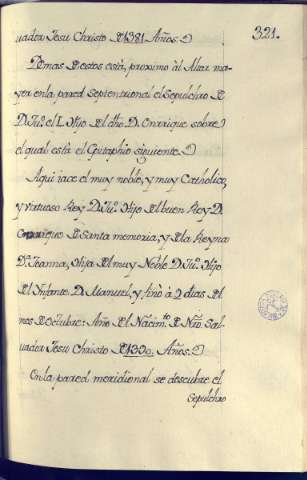 321.
uador Jesu Christo de 1381. Años.
Demas de estos està, proximo àl Altar ma-
yor en la pared Septentrional el Sepulchro de
D. Juº. el I. Hijo del dho D. Enrique sobre
el qual està el Epitaphio siguiente.
Aqui iace el muy noble, y muy Catholico,
y virtuoso Rey D. Juº. Hijo del buen Rey D.
Enrique de Santa memoria, y de la Reyna
Dª. Joanna, Hija del muy Noble D. Juº. Hijo
del Infante D. Manuel, y finò à 9 dias del
mes de Octubre: Año del Nacimto. de Nro Sal-
uador Jesu Christo de 1390. Años.
En la pared meridional se descubre el
Sepulchro